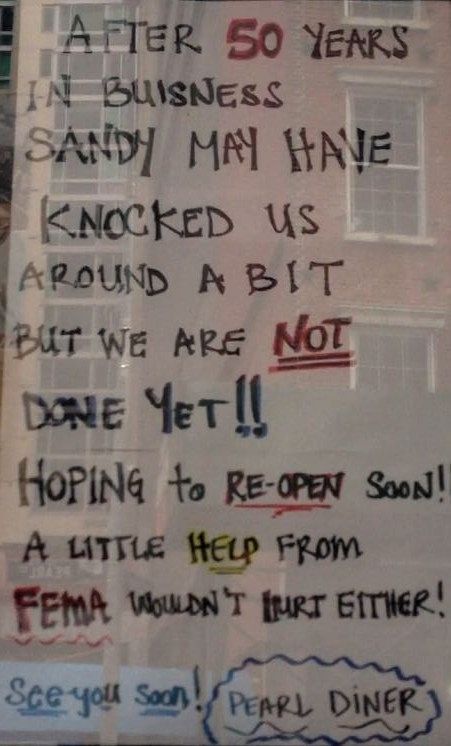 AFTER 50 YEARS
IN BUISNESS
SANDY MAY HAVE
KNOCKED US
AROUND A BIT
BUT WE ARE NOT
DONE YET!!
HOPING to RE-OPEN SOON!
A LITTLE HELP FROM
FEMA WOULDN'T HURT EITHER!
See you soon! PEARL DINER